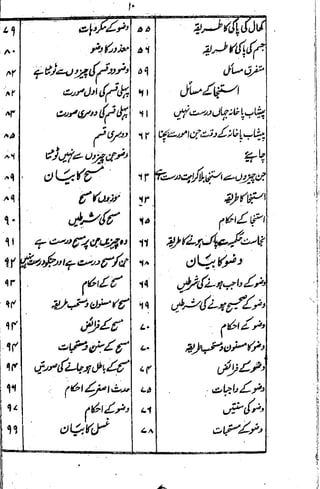 ۱۰
کھال کی پاکی کا طریقہ ۵۵
جسم کی پاکی کا طریقہ ۵۶
متفرق مسائل ۵۹
استنجا کے مسائل ۶۱
پیشاب پاخانہ جہاں درست نہیں ۶۱
پیشاب پاخانہ کے وقت جن امور سے بچنا ۶۲
چاہیے
جن چیزوں سے استنجا بلا کراہت درست ہے ۶۳
استنجا کا طریقہ ۶۳
استنجا کے احکام ۶۵
نجاست حکمیہ سے پاک ہونے کا طریقہ ۶۶
وضو کا بیان ۶۸
وضو کے واجب ہونے کی شرطیں ۶۹
وضو کے صحیح ہونے کی شرطیں ۶۹
وضو کے احکام ۷۰
وضو کا مسنون و مستحب طریقہ ۷۰
وضو کے فرائض ۷۴
وضو کے واجبات ۷۵
وضو کی سنتیں ۷۶
وضو کے مستحبات ۷۸
وضو کے مکروہات ۷۹
معذور کا وضو ۸۰
وضو دو قسم کی چیزوں سے ٹوٹتا ہے ۸۲
پہلی قسم کی اول صورت ۸۲
پہلی قسم کی دوسری صورت ۸۳
دوسری قسم ۸۵
وضو جن چیزوں سے نہیں ٹوٹتا ۸۶
مسح کا بیان ۸۹
موزوں کا مسح ۸۹
مسح کی شرطیں ۹۰
وہ چیزیں جن پر مسح درست ہے ۹۱
جن کو مسح درست ہے اور جنکو درست نہیں ۹۲
مسح کے احکام ۹۳
مسح کا مسنون و مستحب طریقہ ۹۴
مسح کے فرائض ۹۴
مسح کے سنن و مستحبات ۹۴
مسح کے باطل ہو جانے کی صورتیں ۹۴
حدث اصغر کے احکام ۹۶
وضو کے احکام ۹۷
غسل کا بیان ۹۹